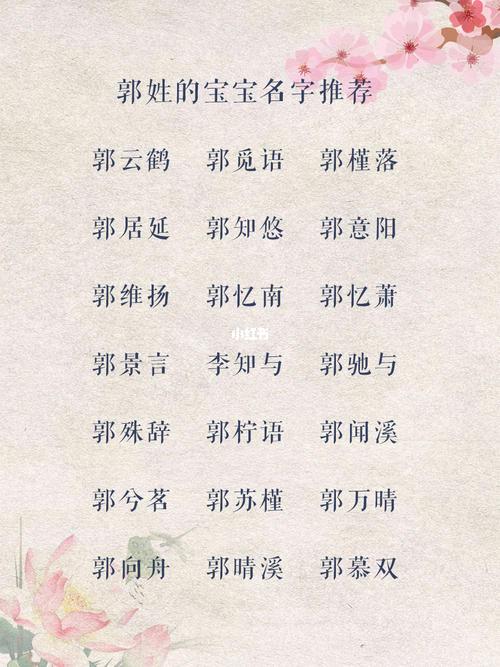 郭姓的宝宝名字推荐
郭云鹤 郭觅语 郭槿落
郭居延 郭知悠 郭意阳
郭维扬 郭忆南 郭忆萧
小红书
郭景言 李知与 郭驰与
郭殊辞 郭柠语 郭闻溪
郭兮茗 郭苏槿 郭万晴
郭向舟 郭晴溪 郭慕双